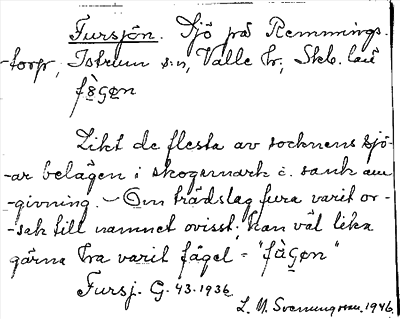 Fursjön. Sjö på Remmings-
-torp, Istrum s:n, Valle hr; Skb. län
Likt de flesta av socknens sjö-
-ar belägen i skogsmark o. sank om-
-givning. – Om trädslag fura varit or-
-sak till namnet ovisst; kan väl lika
gärna ha varit fågel = "fàgøn"
Fursj. G. 43-1936
L. M. Svenungsson. 1946.